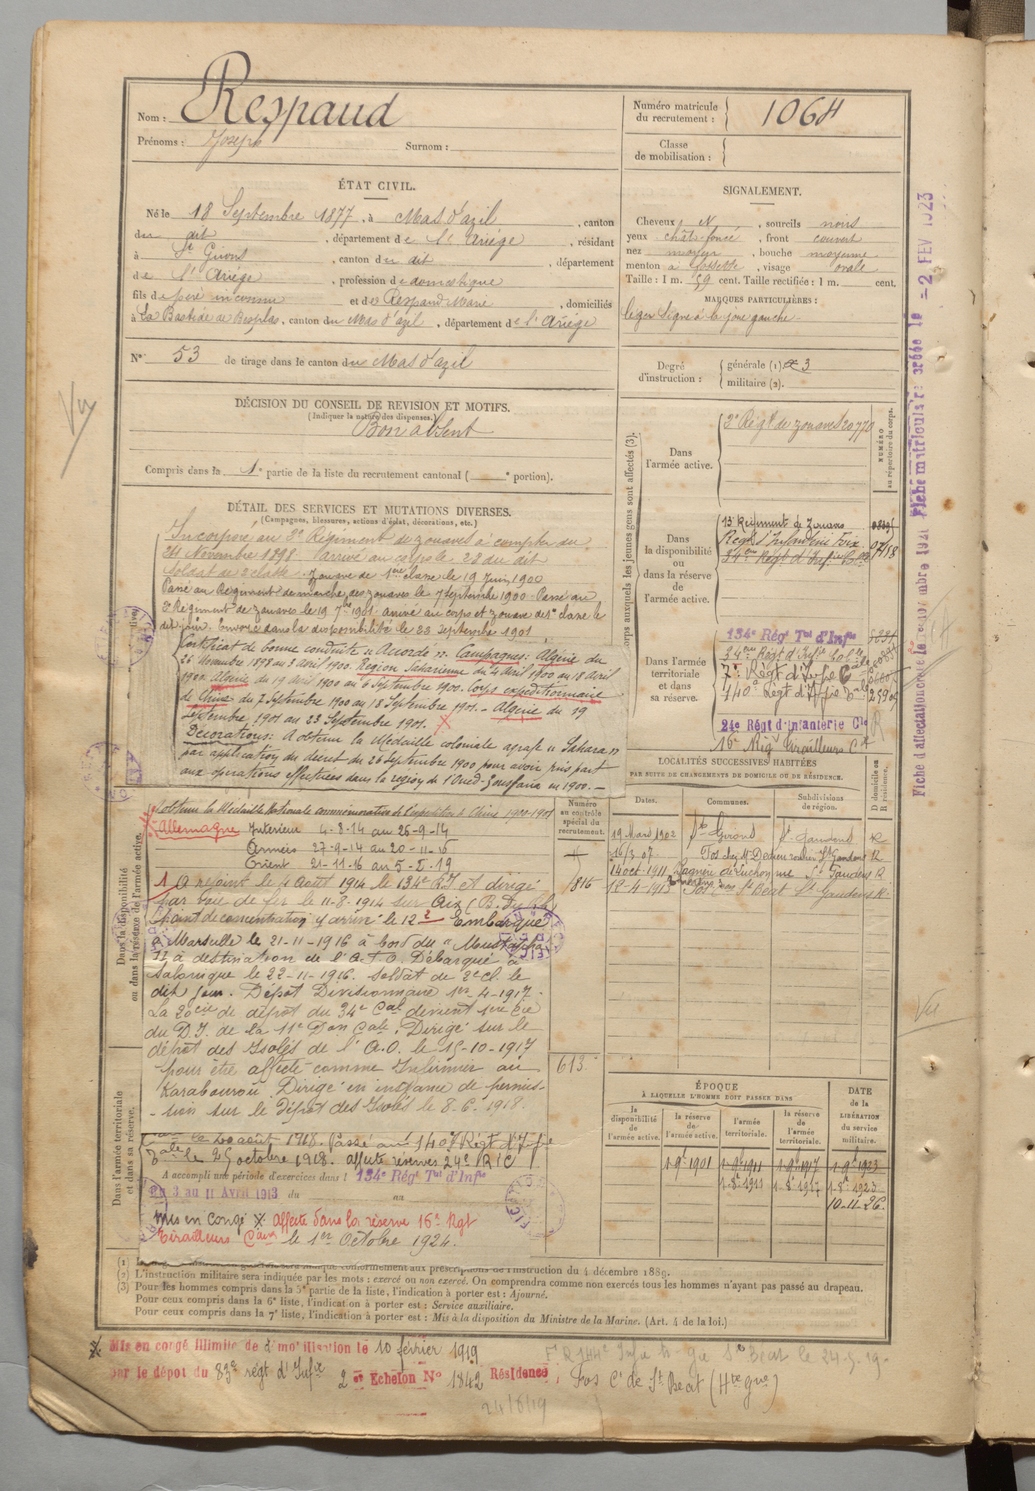 Nom : Respaud
Prénoms : Joseph Surnom :
Numéro matricule du recrutement : 1064
Classe de mobilisation :
ÉTAT CIVIL.
Né le 18 Septembre 1877, à Mas d'azil, canton
du dit, département de l'Ariège, résidant
à St Girons, canton du dit, département
de l'Ariège, profession de domestique
fils de père inconnu et de Respaud Marie, domiciliés
à La Bastide de Besplas, canton du Mas d'azil, département de l'Ariège
N° 53 de tirage dans le canton du Mas d'azil
DÉCISION DU CONSEIL DE REVISION ET MOTIFS.
(Indiquer la nature des dispenses.)
Bon absent
Compris dans la 1e partie de la liste du recrutement cantonal ( e portion).
SIGNALEMENT.
Cheveux N, sourcils noirs
yeux chât. foncé, front couvert
nez moyen, bouche moyenne
menton à fossette, visage ovale
Taille : 1 m. 59 cent. Taille rectifiée : 1 m. cent.
MARQUES PARTICULIÈRES :
léger signe à la joue gauche
Degré d'instruction : générale (1) 3
militaire (2).
DÉTAIL DES SERVICES ET MUTATIONS DIVERSES.
(Campagnes, blessures, actions d'éclat, décorations, etc.)
Incorporé au 3e Régiment de zouaves à compter du
24 Novembre 1898. Arrivé au corps le 28 du dit
Soldat de 2e classe. Zouave de 1ère classe le 19 Juin 1900
Passé au Régiment de marche des zouaves le 7 septembre 1900. Passé au
3e Régiment de zouaves le 19 7bre 1901 arrivé au corps et zouave de 1e classe le
dit jour. Envoyé dans la disponibilité le 23 septembre 1901.
Certificat de bonne conduite "Accordé". Campagnes : Algérie du
25 Novembre 1898 au 3 avril 1900. Région Saharienne du 4 avril 1900 au 18 avril
1900. Algérie du 19 avril 1900 au 6 Septembre 1900. Corps expéditionnaire
de Chine du 7 Septembre 1900 au 18 Septembre 1901. - Algérie du 19
septembre 1901 au 23 Septembre 1901.
Décorations : A obtenu la Médaille coloniale agrafe "Sahara"
par application du décret du 26 Septembre 1900 pour avoir pris part
aux opérations effectuées dans la région de l'Oued-Zousfana en 1900.
A obtenu la Médaille Nationale commémorative de l'expédition de Chine 1900-1901
Allemagne Intérieur 4-8-14 au 26-9-14
Armées 27-9-14 au 20-11-16
Orient 21-11-16 au 5-2-19
A rejoint le 4 Août 1914 le 134e RIT et dirigé
par voie de fer le 11-8-1914 sur Aix (B. du Rh.)
point de concentration y arrivé le 12. Embarqué
à Marseille le 21-11-1916 à bord du "Moustapha
II" à destination de l'A.F.O. Débarqué à
Salonique le 22-11-1916. Soldat de 2e cl. le
dit jour. Dépôt Divisionnaire 1er-4-1917.
La 20e cie de dépôt du 34e Cal devient 1ère Cie
du D.I. de la 11e Don Cale. Dirigé sur le
dépôt des Isolés de l'A.O. le 15-10-1917
pour être affecté comme Infirmier au
Karabourou. Dirigé en instance de permis-
sion sur le Dépôt des Isolés le 8-6-1918.
le 20 août 1918. Passé au 140e Régt d'Infie
le 25 octobre 1918. affecté réserves 24e RIC
A accompli une période d'exercices dans l 134e Régt Tal d'Infie
du 3 au 11 Avril 1913 du au
mis en congé X. Affecté dans la réserve 16e Rgt
Tirailleurs Caux le 1er Octobre 1924.
Corps auxquels les jeunes gens sont affectés (3).
NUMÉRO au répertoire du corps.
Dans l'armée active.
3e Régt de zouaves 20770
Dans la disponibilité ou dans la réserve de l'armée active.
13e Régiment de Zouaves
Régt d'Infanterie Foix
Dans l'armée territoriale et dans sa réserve.
134e Régt Tal d'Infie
34eme Régt d'Infie Colle
7e Régt d'Infie Cle
140e Régt d'Infie
24e Régt d'Infanterie Cle
16e Rég Tirailleurs Cx
LOCALITÉS SUCCESSIVES HABITÉES
PAR SUITE DE CHANGEMENTS DE DOMICILE OU DE RÉSIDENCE.
D domicile ou R résidence.
Numéro au contrôle spécial du recrutement.
Dates. Communes. Subdivisions de région.
19 Mars 1902 St Girons St Gaudens R
26/3 07 Fos chez Mr St Gaudens R
14 oct 1911 Bagnères de Luchon St Gaudens R
12-4-1913 Fos con St Béat St Gaudens R
816
613
ÉPOQUE
À LAQUELLE L'HOMME DOIT PASSER DANS
la disponibilité de l'armée active. la réserve de l'armée active. l'armée territoriale. la réserve de l'armée territoriale. DATE de la LIBÉRATION du service militaire.
1-9e 1901 1-9e 1911 1-9e 1917 1-9e 1923
1-8e 1911 1-8e 1917 1-8e 1923
10-11-26.
Dans la disponibilité ou dans la réserve de l'armée active.
Dans l'armée territoriale et dans sa réserve.
(2) L'instruction militaire sera indiquée par les mots : exercé ou non exercé. On comprendra comme non exercés tous les hommes n'ayant pas passé au drapeau.
(3) Pour les hommes compris dans la 5e partie de la liste, l'indication à porter est : Ajourné.
Pour ceux compris dans la 6e liste, l'indication à porter est : Service auxiliaire.
Pour ceux compris dans la 7e liste, l'indication à porter est : Mis à la disposition du Ministre de la Marine. (Art. 4 de la loi.)
Mis en congé illimité de démobilisation le 10 février 1919
par le dépôt du 83e régt d'Infie 2e Echelon N° 1842 Résidence, Fos Cn de St Béat (Hte Gne)
24/6/19
Vu
Vu